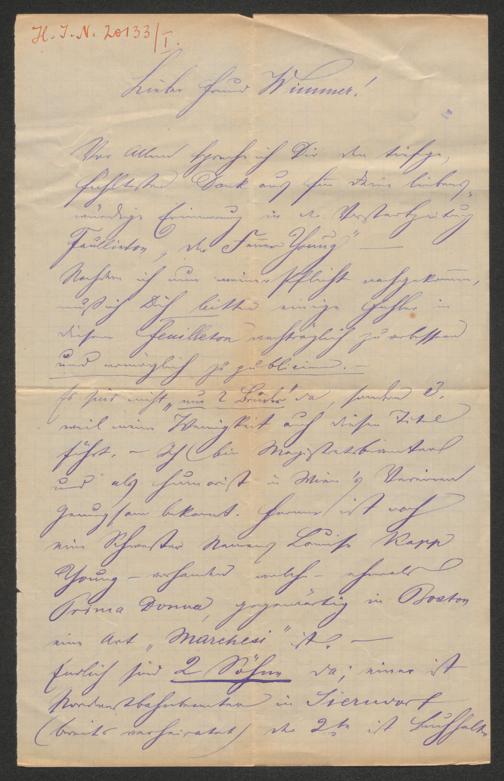 H. I. N. 20133/I.
Lieber Freund Wimmer!
Vor Allem spreche ich Dir den tiefge-
fühltesten Dank aus für Deine liebens-
würdige Erinnerung in der Vorstadtzeitung
Feuilleton, "Young" —
Nachdem ich nun meiner Pflicht nachgekommen,
muß ich Dich bitten einige Fehler in
diesem Feuilleton nachträglich zu verbessern
und womöglich zu publiciren. —
Es sind nicht "nur 2 Brüder" da, sondern 3.
weil meine Wenigkeit auch diesen Titel
führt. — Ich bin Magistratsbeamter
und als Humorist in Wien's Vereinen
genugsam bekannt. Ferner ist noch
eine Schwester Namens Louise Kapp
Young — vorhanden welche — ehemals
Prima Donna, gegenwärtig in Boston
eine Art "Marchesi" ist. —
Endlich sind 2 Söhne da; einer ist
Nordwestbahnbeamter in
(bereits verheiratet) der 2te ist Buchhalter